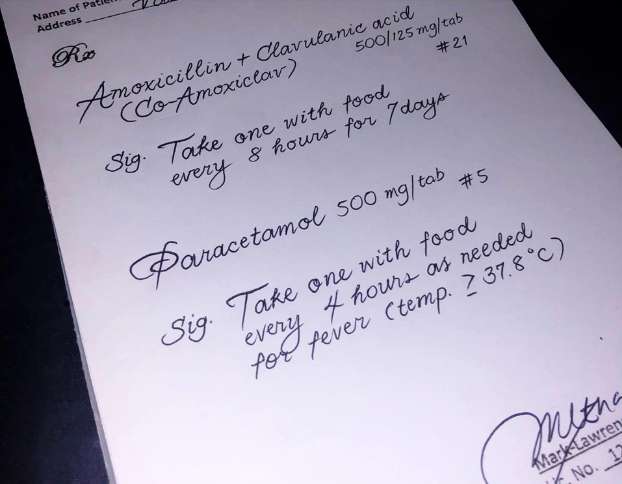 Name of Patien
Address
Rx
Amoxicillin + Clavulanic acid
(Co-Amoxiclav) 500/125 mg/tab
#21
Sig. Take one with food
every 8 hours for 7days
Paracetamol 500 mg/tab #5
Sig. Take one with food
every 4 hours as needed
for fever (temp. ≥ 37.8°C)
Mark-Lawren
No. 12